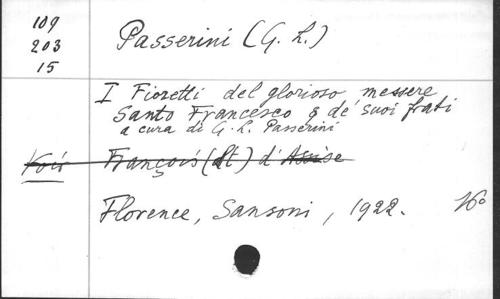 109
203
15
Passerini (G. L.)
I Fioretti del glorioso messere
Santo Francesco e de' suoi frati
a cura di G. L. Passerini
Voir François (St) d'Assise
Florence, Sansoni, 1922. 16°